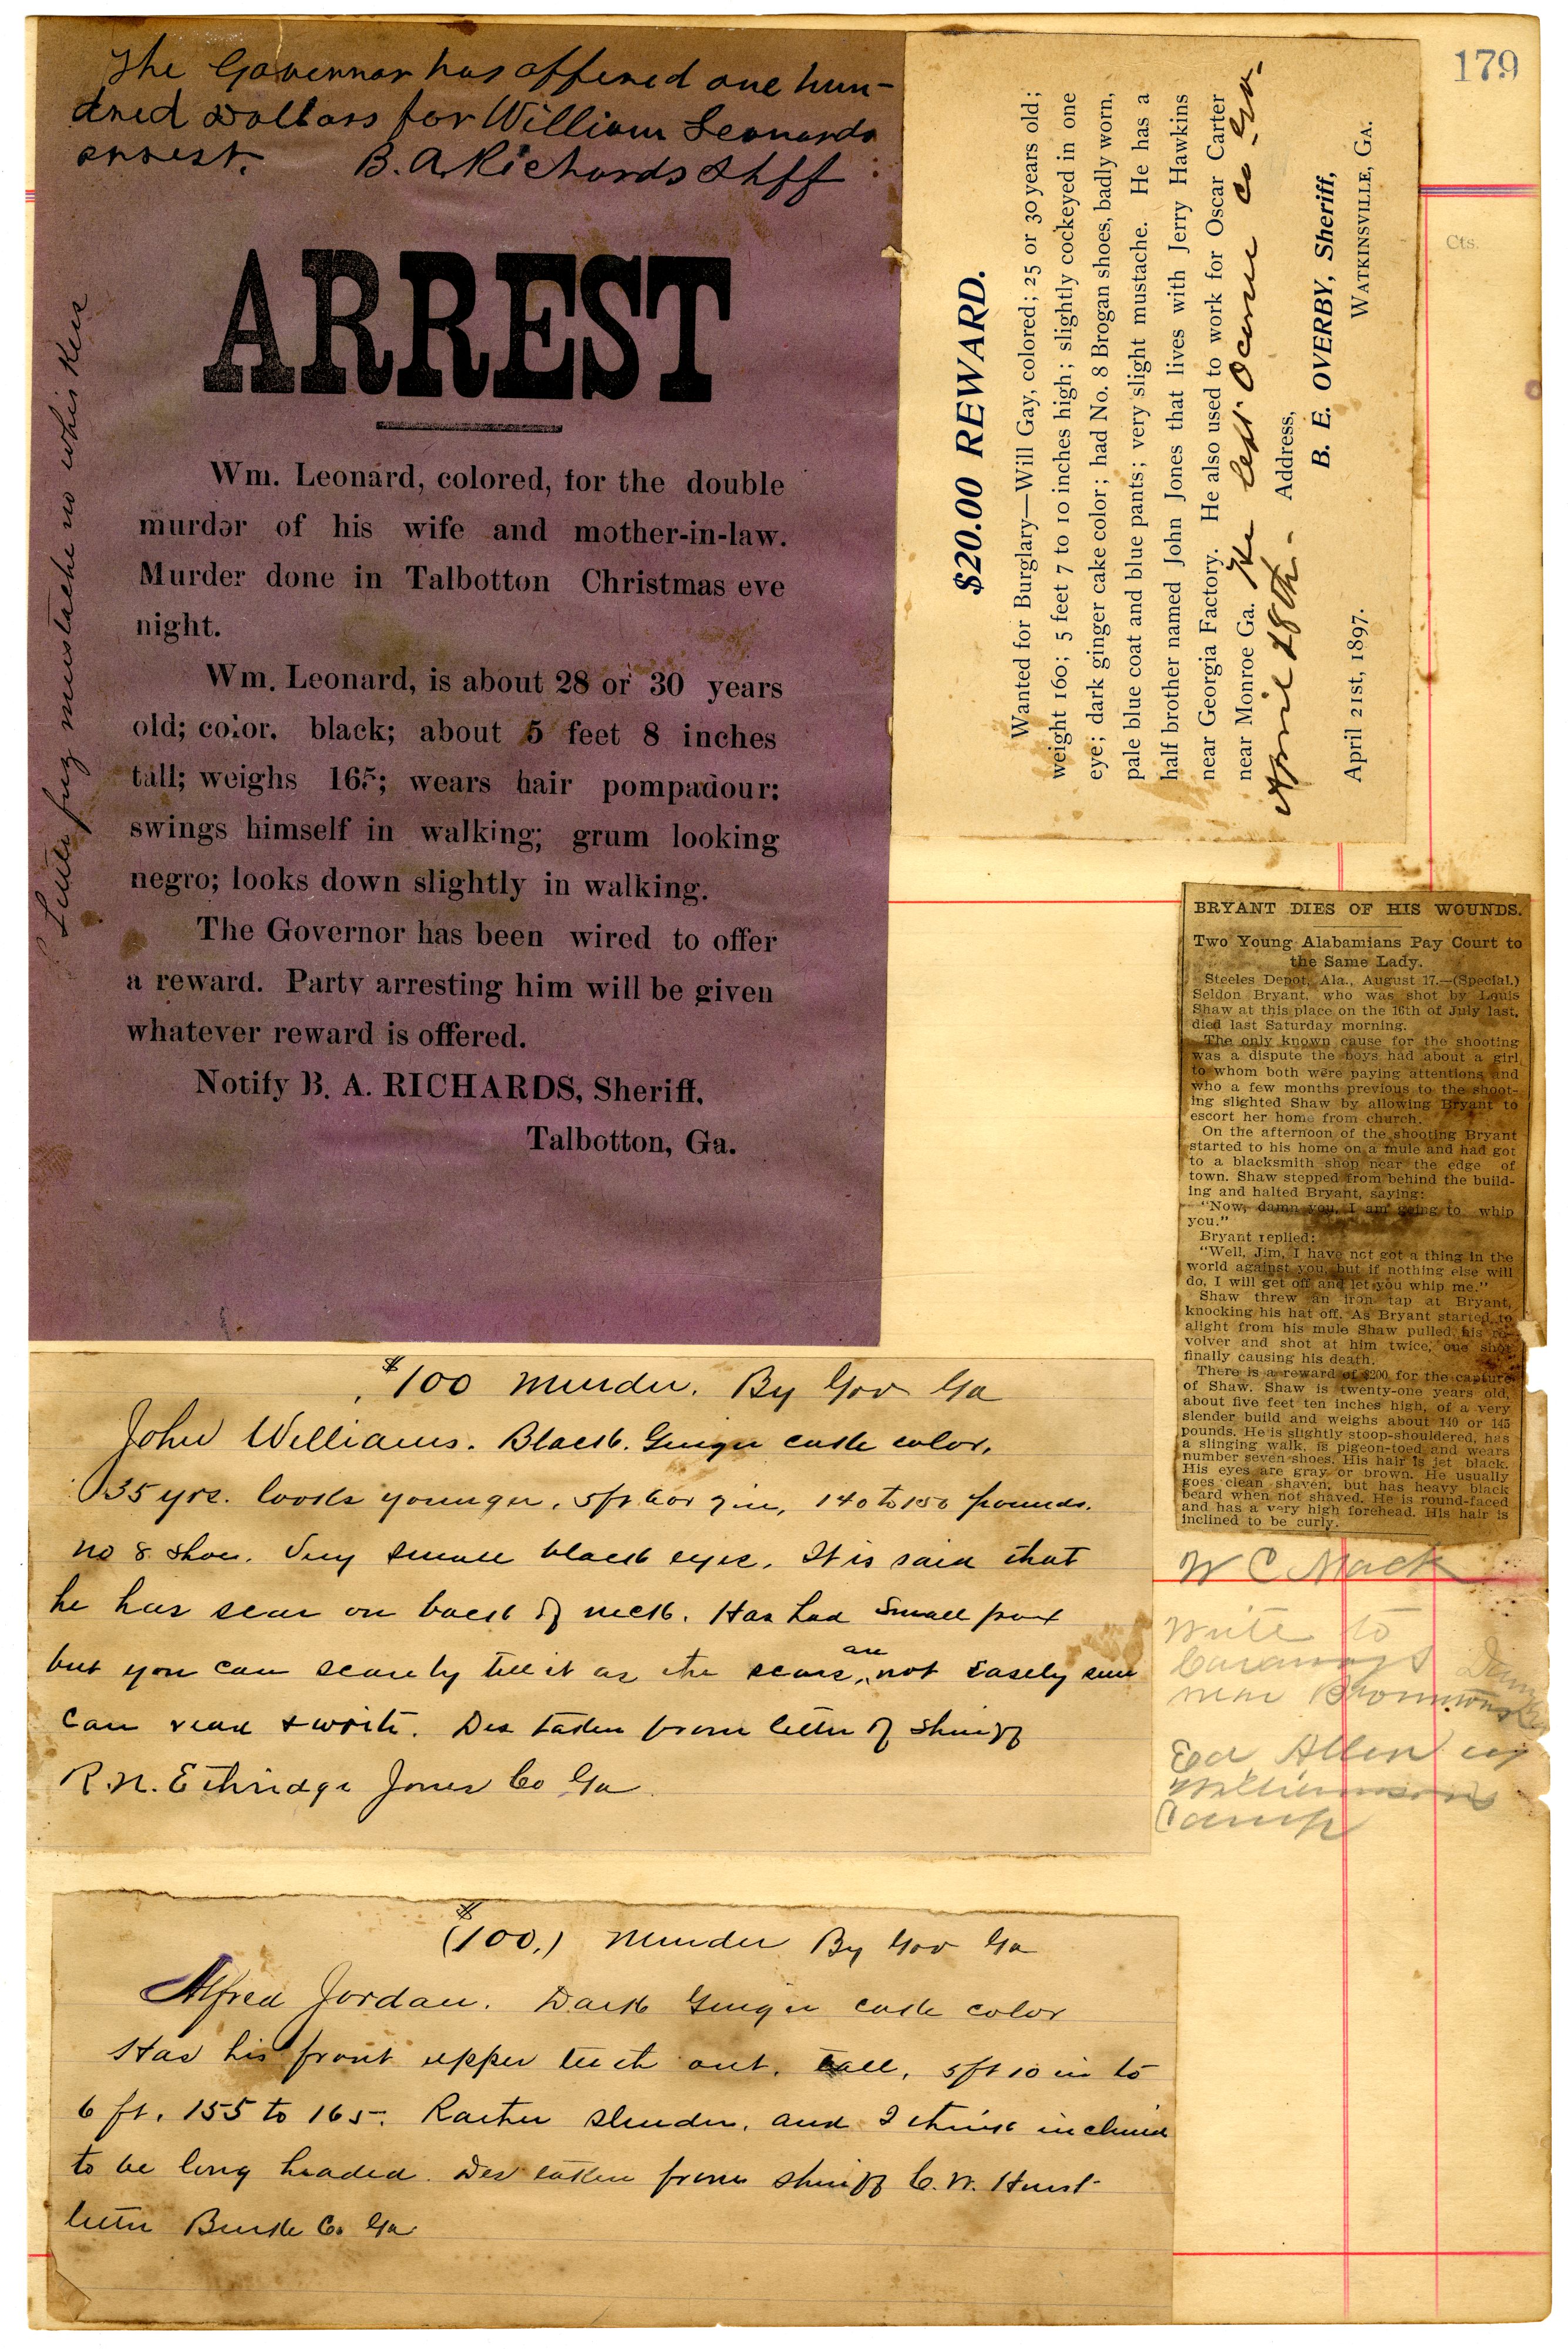 179
The Governor has offered one hun-
dred Dollars for William Leonards
arrest. B. A. Richards Shff
ARREST
Wm. Leonard, colored, for the double
murder of his wife and mother-in-law.
Murder done in Talbotton Christmas eve
night.
Wm. Leonard, is about 28 or 30 years
old; color. black; about 5 feet 8 inches
tall; weighs 165; wears hair pompadour;
swings himself in walking; grum looking
negro; looks down slightly in walking.
The Governor has been wired to offer
a reward. Party arresting him will be given
whatever reward is offered.
Notify B. A. RICHARDS, Sheriff,
Talbotton, Ga.
Little fuz mustache no whis kers
$20.00 REWARD.
Wanted for Burglary—Will Gay, colored; 25 or 30 years old;
weight 160; 5 feet 7 to 10 inches high; slightly cockeyed in one
eye; dark ginger cake color; had No. 8 Brogan shoes, badly worn,
pale blue coat and blue pants; very slight mustache. He has a
half brother named John Jones that lives with Jerry Hawkins
near Georgia Factory. He also used to work for Oscar Carter
near Monroe Ga. He left Oconee Co Ga.
April 18th.
Address,
B. E. OVERBY, Sheriff,
April 21st, 1897. WATKINSVILLE, GA.
Cts.
BRYANT DIES OF HIS WOUNDS.
Two Young Alabamians Pay Court to
the Same Lady.
Steeles Depot, Ala., August 17.—(Special.)
Seldon Bryant, who was shot by Louis
Shaw at this place on the 16th of July last,
died last Saturday morning.
The only known cause for the shooting
was a dispute the boys had about a girl
to whom both were paying attentions and
who a few months previous to the shoot-
ing slighted Shaw by allowing Bryant to
escort her home from church.
On the afternoon of the shooting Bryant
started to his home on a mule and had got
to a blacksmith shop near the edge of
town. Shaw stepped from behind the build-
ing and halted Bryant, saying:
"Now, damn you, I am going to whip
you."
Bryant replied:
"Well, Jim, I have not got a thing in the
world against you, but if nothing else will
do, I will get off and let you whip me."
Shaw threw an iron tap at Bryant,
knocking his hat off. As Bryant started to
alight from his mule Shaw pulled his re-
volver and shot at him twice, one shot
finally causing his death.
There is a reward of $200 for the capture
of Shaw. Shaw is twenty-one years old,
about five feet ten inches high, of a very
slender build and weighs about 140 or 145
pounds. He is slightly stoop-shouldered, has
a slinging walk, is pigeon-toed and wears
number seven shoes. His hair is jet black.
His eyes are gray or brown. He usually
goes clean shaven, but has heavy black
beard when not shaved. He is round-faced
and has a very high forehead. His hair is
inclined to be curly.
W C Mack
Write to
near
Ed Allen
Williamson's
Camp
$100 Murder. By Gov Ga
John Williams. Black. Ginger cake color.
35 yrs. looks younger, 5ft 6 or 7 in, 140 to 150 pounds.
no 8 shoe. Very small black eyes. It is said that
he has scar on back of neck. Has had small pox
but you can scarcely tell it as the scars are not easely seen
can read & write. Des taken from letter of sheriff
R. N. Ethridge Jones Co Ga
($100.) Murder By Gov Ga
Alfred Jordan. Dark Ginger cake color
Has his front upper teeth out. tall, 5ft 10 in to
6 ft. 155 to 165. Rather slender, and I think inclined
to be long headed. Des taken from sheriff C. W. Hurst
letter Burke Co Ga